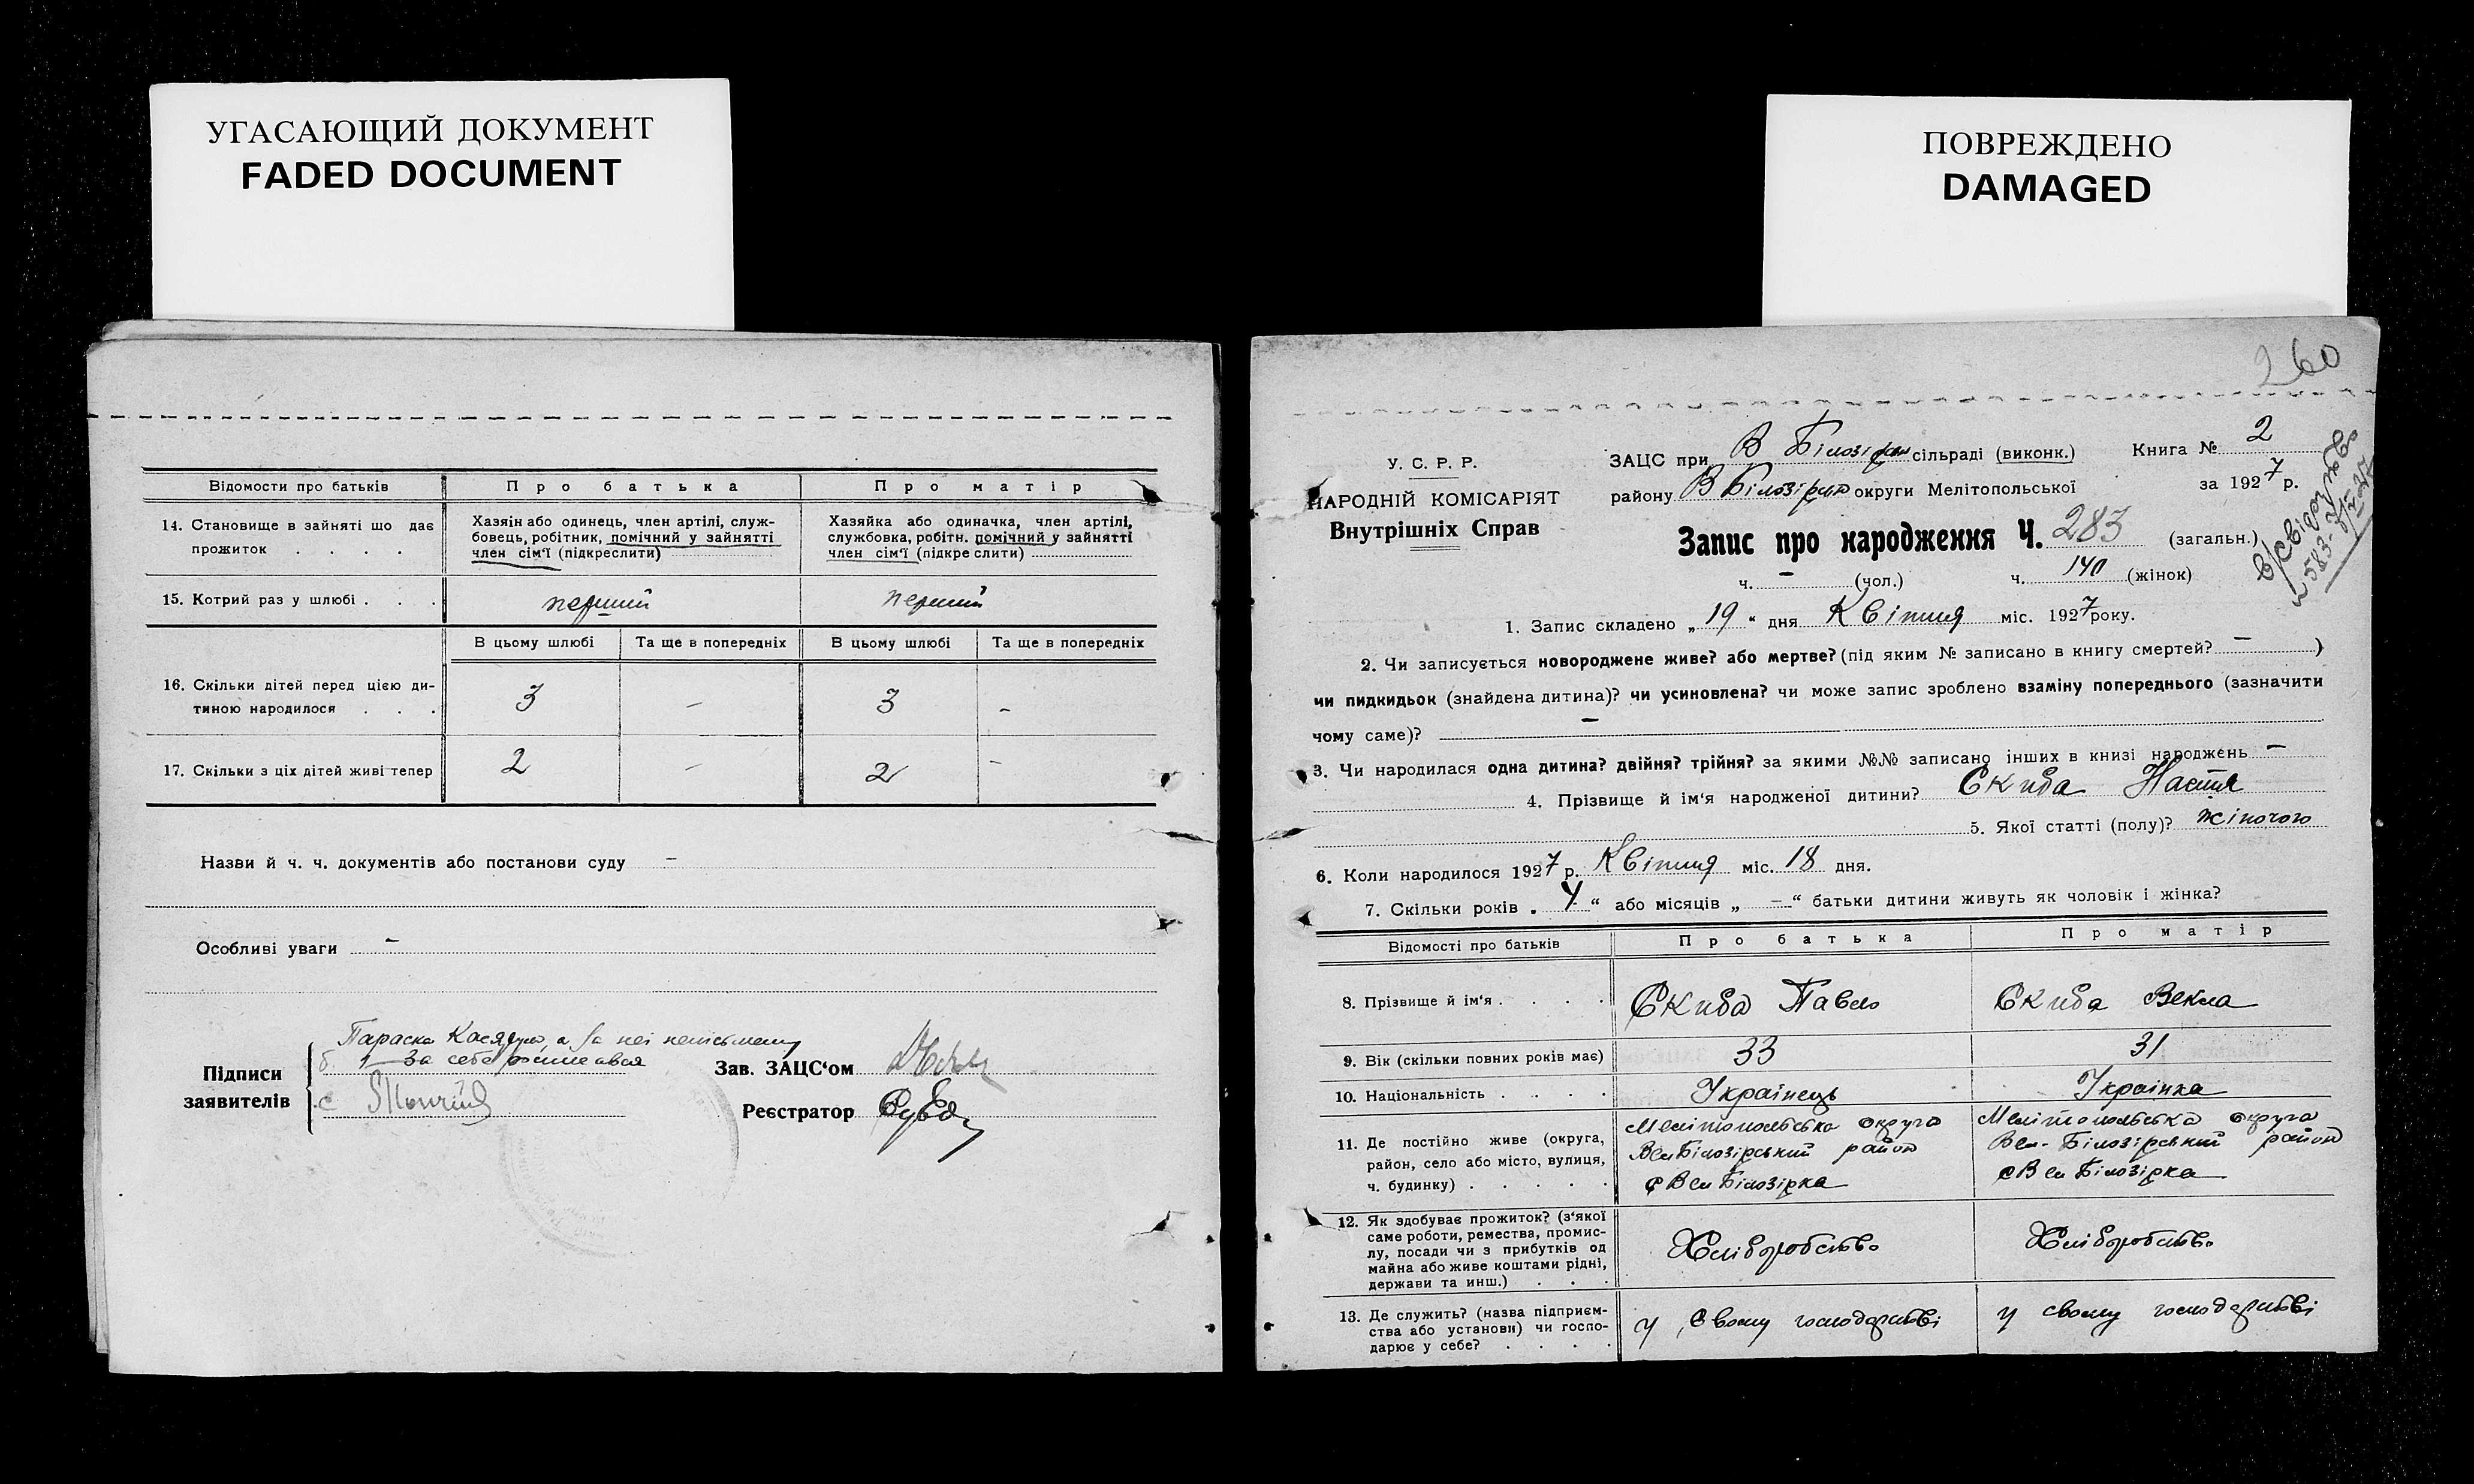 УГАСАЮЩИЙ ДОКУМЕНТ
FADED DOCUMENT
Відомости про батьків
Про батька
Про матір
14. Становище в зайняті що дає прожиток . . . .
Хазяін або одинець, член артілі, служ-
бовець, робітник, помічний у зайнятті
член сім'ї (підкреслити)
Хазяйка або одиначка, член артілі,
службовка, робітн. помічний у зайнятті
член сім'ї (підкреслити)
15. Котрий раз у шлюбі . . .
перший
перший
В цьому шлюбі
Та ще в попередніх
В цьому шлюбі
Та ще в попередніх
16. Скільки дітей перед цією ди-
тиною народилося . . .
3
–
3
–
17. Скільки з ціх дітей живі тепер
2
–
2
–
Назви й ч. ч. документів або постанови суду –
Особливі уваги –
Підписи
заявителів
Параска
за неі неписьмену
За себе
Зав. ЗАЦС'ом
Реєстратор
ПОВРЕЖДЕНО
DAMAGED
260
У. С. Р. Р.
НАРОДНІЙ КОМІСАРІЯТ
Внутрішніх Справ
ЗАЦС при В Білозірск сільраді (виконк.)
Книга № 2
району В Білозірск округи Мелітопольської
за 1927 р.
Запис про народження Ч. 283 (загальн.)
ч. – (чол.)
ч. 140 (жінок)
1. Запис складено „ 19 “ дня Квітня міс. 1927 року.
2. Чи записується новороджене живе? або мертве? (під яким № записано в книгу смертей? – )
чи пидкидьок (знайдена дитина)? чи усиновлена? чи може запис зроблено взаміну попереднього (зазначити
чому саме)? –
3. Чи народилася одна дитина? двійня? трійня? за якими №№ записано інших в книзі народжень –
4. Прізвище й ім'я народженої дитини? Скиба Настя
5. Якої статті (полу)? жіночого
6. Коли народилося 1927 р. Квітня міс. 18 дня.
7. Скільки років „ 4 “ або місяців „ – “ батьки дитини живуть як чоловік і жінка?
Відомості про батьків
Про батька
Про матір
8. Прізвище й ім'я . . . .
Скиба Павло
Скиба Векла
9. Вік (скільки повних років має)
33
31
10. Національність . . . .
Українець
Українка
11. Де постійно живе (округа,
район, село або місто, вулиця,
ч. будинку) . . . . .
Мелітопольська округа
Вел Білозірський район
с Вел Білозірка
Мелітопольська округа
Вел-Білозірський район
с Вел Білозірка
12. Як здобуває прожиток? (з'якої
саме роботи, ремества, промис-
лу, посади чи з прибутків од
майна або живе коштами рідні,
держави та инш.) . . .
Хліборобство
Хліборобство
13. Де служить? (назва підприєм-
ства або установи) чи госпо-
дарює у себе? . . . .
у свому господарстві
у свому господарстві